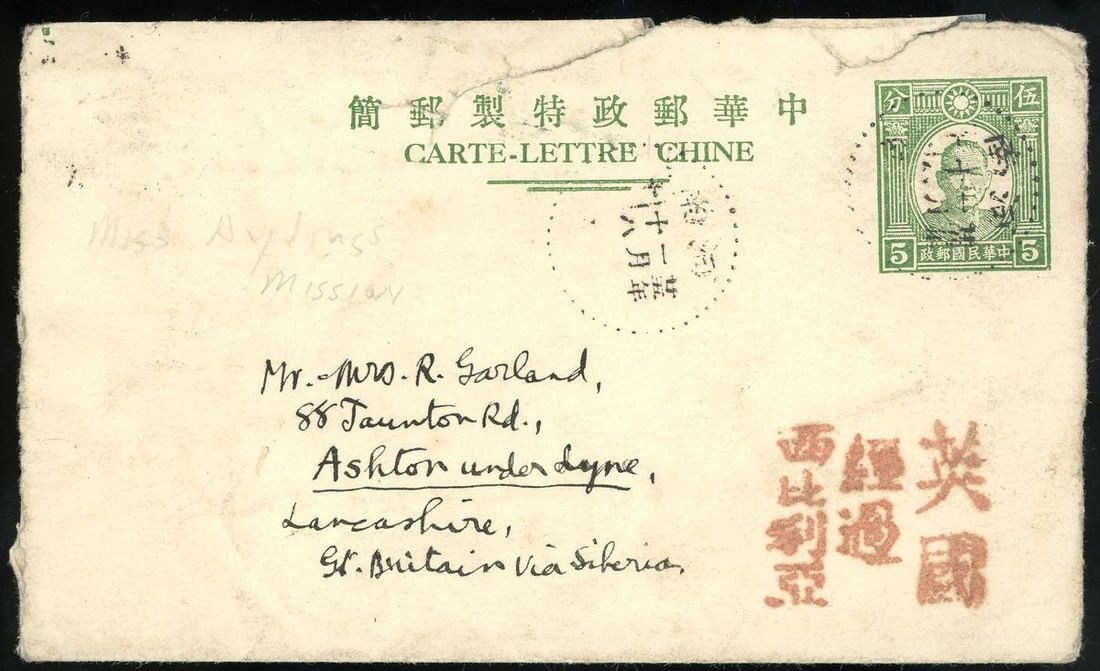 中華郵政特製郵簡
CARTE-LETTRE CHINE
伍 分
5 中華民國郵政 5
十一月
廿五年
十八
Miss
Mission
Mr. & Mrs. R. Garland,
88 Taunton Rd.,
Ashton under Lyne,
Lancashire,
Gt. Britain Via Siberia.
英國
經過
西比利亞